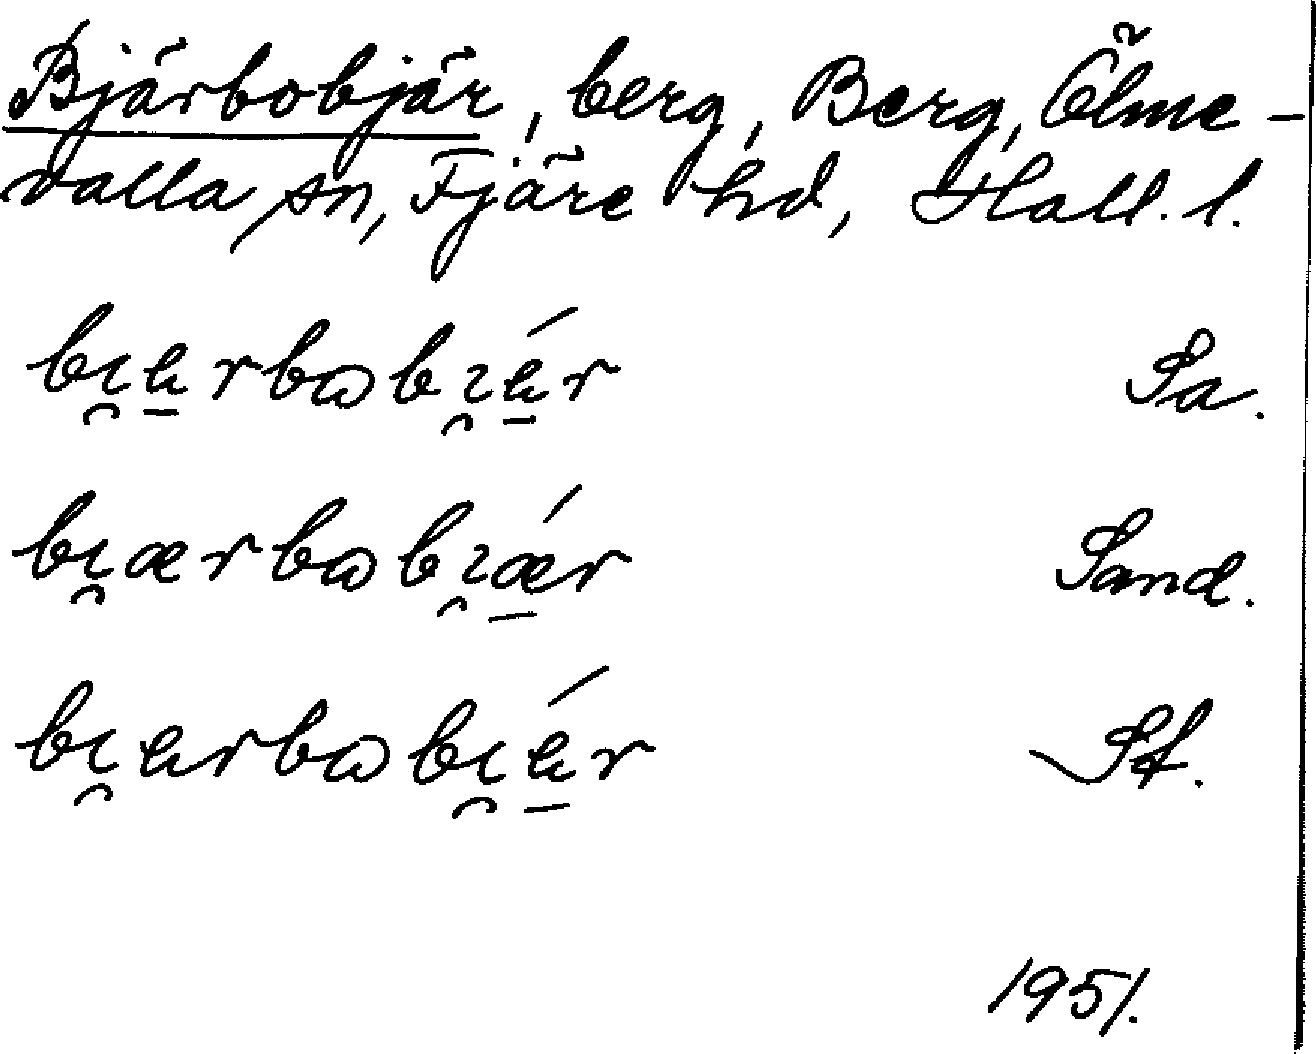 Bjärbobjär, berg, Berg, Ölme-
valla sn, Fjäre hd, Hall. l.
bı̯a̱rbωbı̯á̱r Sa.
bı̯ærbωbı̯ǽ̱r Sand.
bı̯arbωbı̯á̱r Sf.
1951.